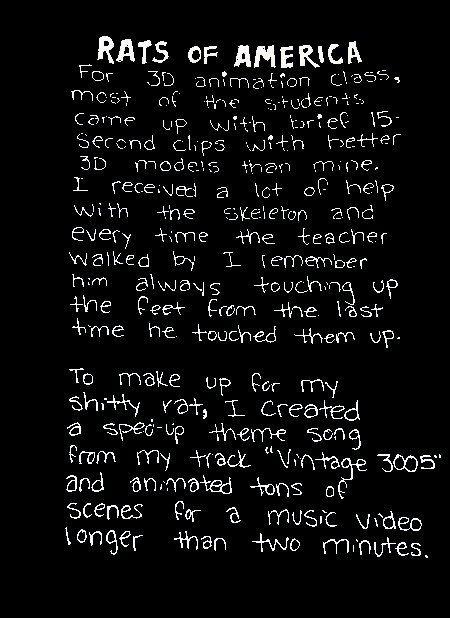 RATS OF AMERICA
For 3D animation class,
most of the students
came up with brief 15-
second clips with better
3D models than mine.
I received a lot of help
with the skeleton and
every time the teacher
walked by I remember
him always touching up
the feet from the last
time he touched them up.
To make up for my
shitty rat, I created
a sped-up theme song
from my track "Vintage 3005"
and animated tons of
scenes for a music video
longer than two minutes.